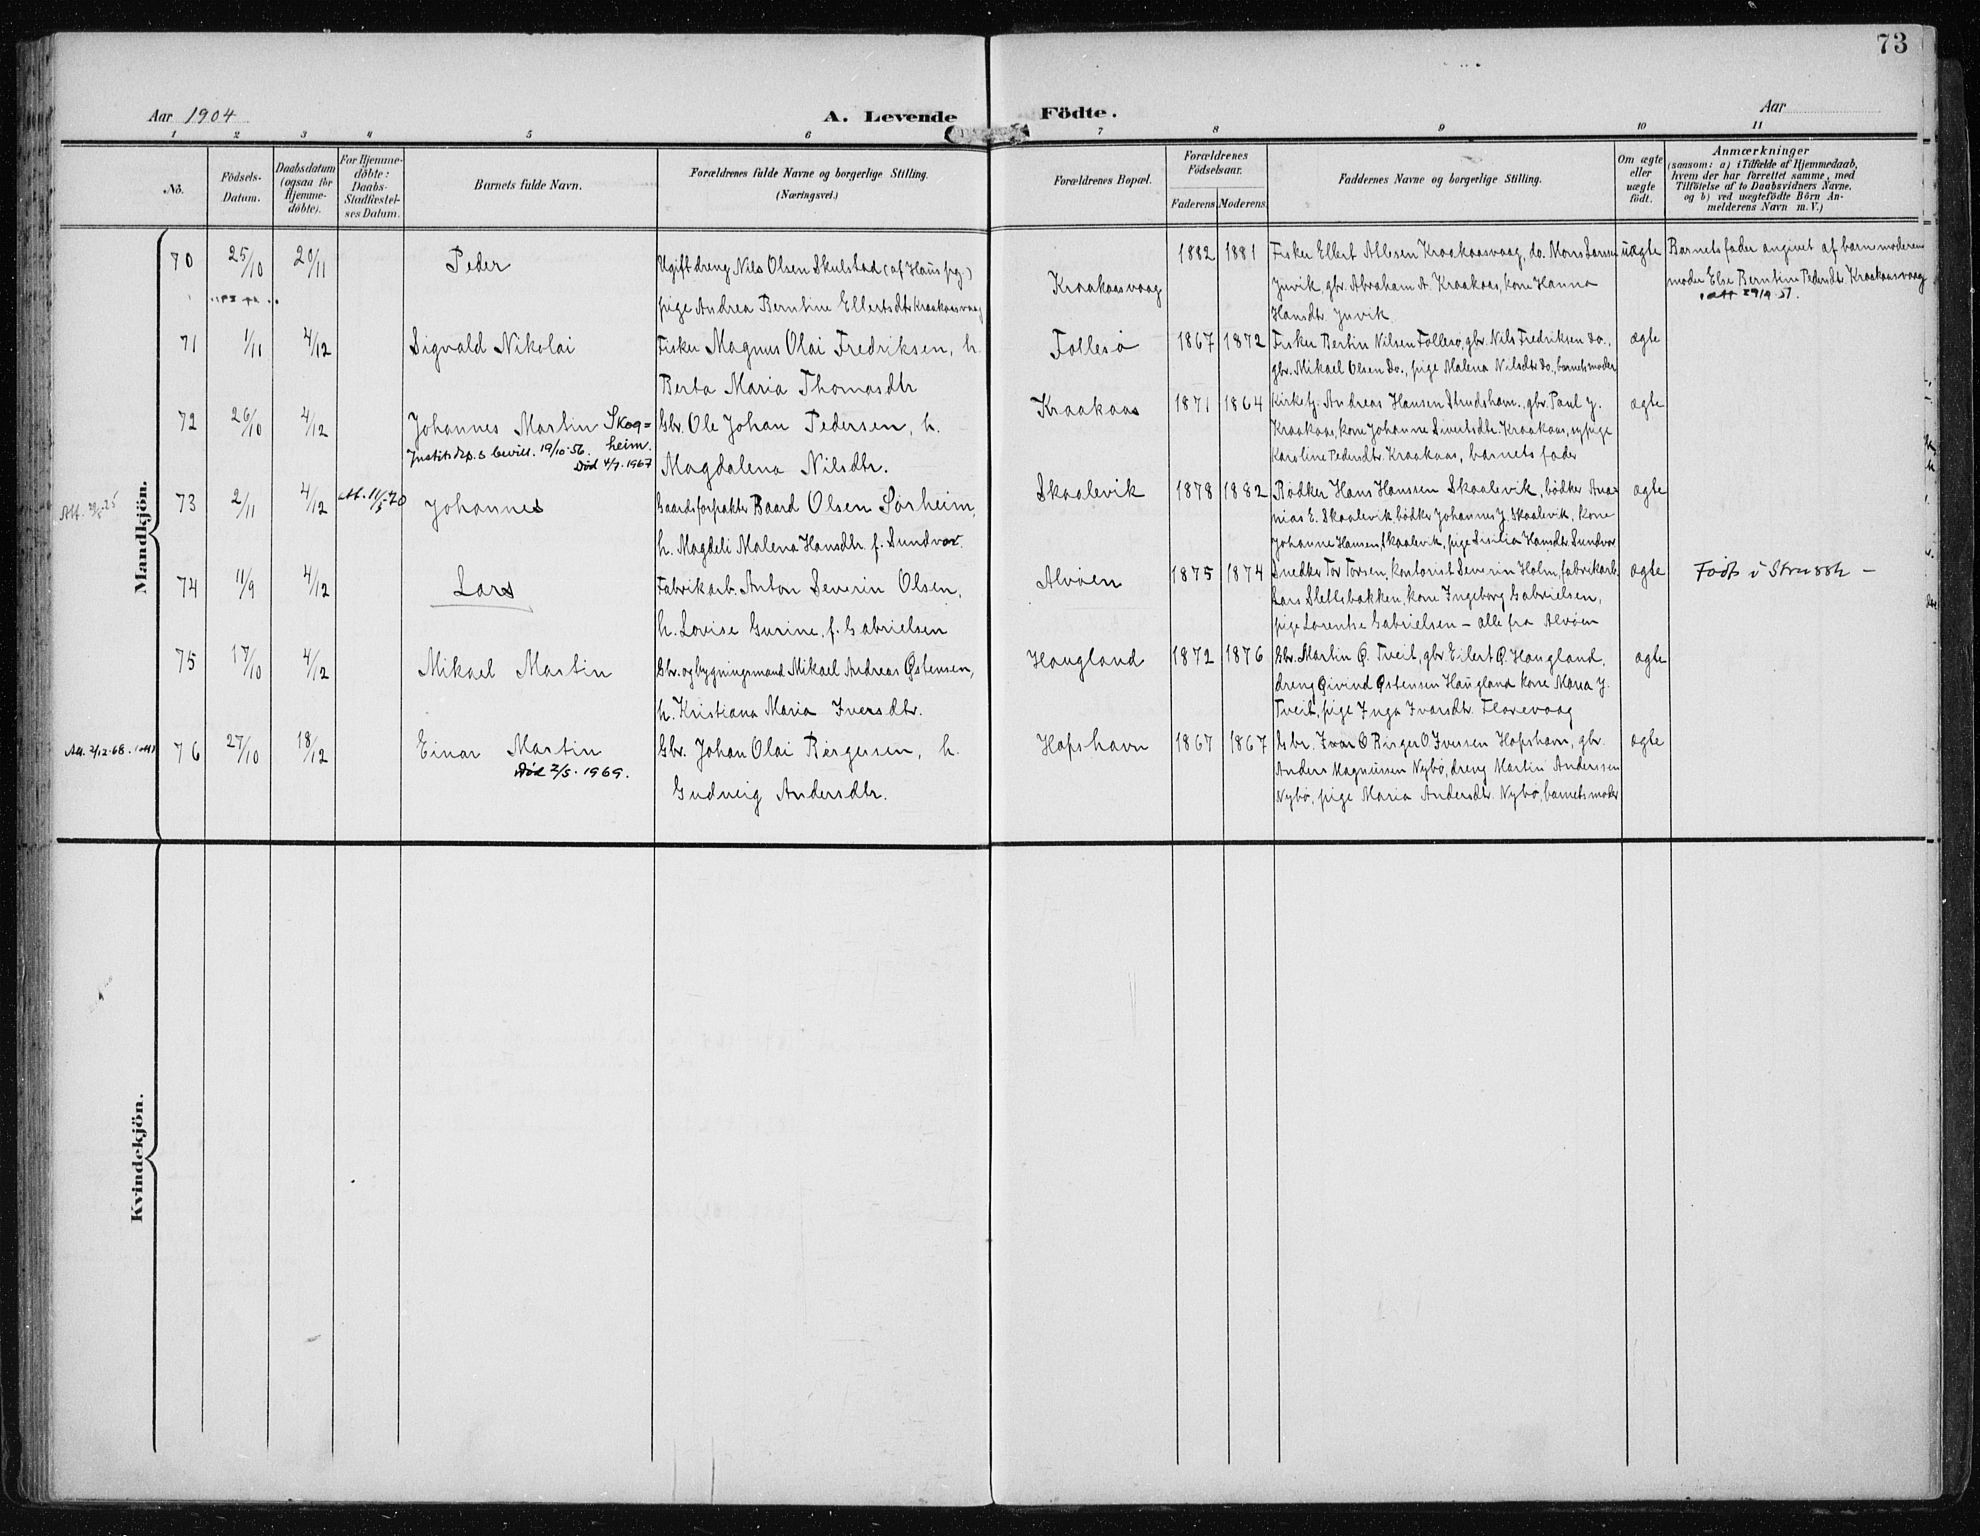 73
Aar 1904
A. Levende Födte.
Aar
1 2 3 4 5 6 7 8 9 10 11
Nö.
Födsels-Datum.
Daabsdatum (ogsaa for Hjemme-döbte).
For Hjemme-döbte: Daabs-Stadfæstel-ses Datum.
Barnets fulde Navn.
Forældrenes fulde Navne og borgerlige Stilling. (Næringsvei.)
Forældrenes Bopæl.
Forældrenes Födselsaar.
Faderens Moderens
Faddernes Navne og borgerlige Stilling.
Om ægte eller uægte födt.
Anmærkninger
(saasom: a) i Tilfælde af Hjemmedaab,
hvem der har forrettet samme, med
Tilföielse af to Daabsvidners Navne,
og b) ved uægtefödte Börn An-
melderens Navn m. V.)
Mandkjön.
70 25/10 20/11 Peder
Ugift dreng Nils Olsen Skulstad (af Haus pg.)
pige Andrea Berntine Ellertsdtr Kraakaasvaag
Kraakaasvaag 1882 1881
Fisker Ellert Atlesen Kraakaasvaag, do. Mons Larsen
Juvik, gbr. Abraham A. Kraakaas, kone Hanna
Hansdtr. Juvik
uægte
Barnets fader angivet af barnemoderens
moder Else Berntine Pedersdtr. Kraakaasvaag
71 1/11 4/12 Sigvald Nikolai
Fisker Magnus Olai Fredriksen, h.
Berta Maria Thomasdtr
Follesø 1867 1872
Fisker Bertin Nilsen Follesø, gbr. Nils Fredriksen do.,
gbr. Mikael Olsen do., pige Malena Nilsdtr do., barnets moder
ægte
72 26/10 4/12 Johannes Martin Skog=
heim.
Justitsdep.s bevill. 19/10-56.
Død 4/7. 1967
Gbr. Ole Johan Pedersen, h.
Magdalena Nilsdtr.
Kraakaas 1871 1864
Kirketj. Andreas Hansen Strudshavn, gbr. Paul J.
Kraakaas, kone Johanne Sivertsdtr. Kraakaas, sypige
Karoline Pedersdtr. Kraakaas, barnets fader
ægte
73 2/11 4/12 Johannes
Gaardsforpakter Baard Olsen Sørheim,
h. Magdeli Malena Hansdtr. f. Sundvor.
Skaalevik 1878 1882
Bødker Hans Hanssen Skaalevik, bødker Ana=
nias E. Skaalevik, bødker Johannes J. Skaalevik, kone
Johanne Hansen, Skaalevik, pige Sisilia Hansdtr. Sundvor
ægte
74 11/9 4/12 Lars
Fabrikarb. Anton Severin Olsen,
h. Lovise Gurine, f. Gabrielsen
Alvøen 1875 1874
Snedker Tor Torsen, kontorist Severin Holm, fabrikarb.
Lars Slettebakken, kone Ingeborg Gabrielsen,
pige Lorentse Gabrielsen – alle fra Alvøen
ægte
75 17/10 4/12 Mikael Martin
Gbr. og bygningsmand Mikael Andreas Østensen,
h. Kristiana Maria Iversdtr.
Haugland 1872 1876
Gbr. Martin Ø. Tveit, gbr. Eilert Ø. Haugland,
dreng Øivind Østensen Haugland kone Maria J.
Tveit, pige Inga Ivarsdtr. Florvaag
ægte
Att. 2/12-68.
76 27/10 18/12 Einar Martin
Død 2/5. 1969.
Gbr. Johan Olai Børgesen, h.
Gudveig Andersdtr.
Hopshavn 1867 1867
Gbr. Ivar O. Birger O. Iversen Hopshavn, gbr.
Anders Magnussen Nybø, dreng Martin Anderssen
Nybø, pige Maria Andersdtr. Nybø, barnets moder
ægte
Kvindekjön.